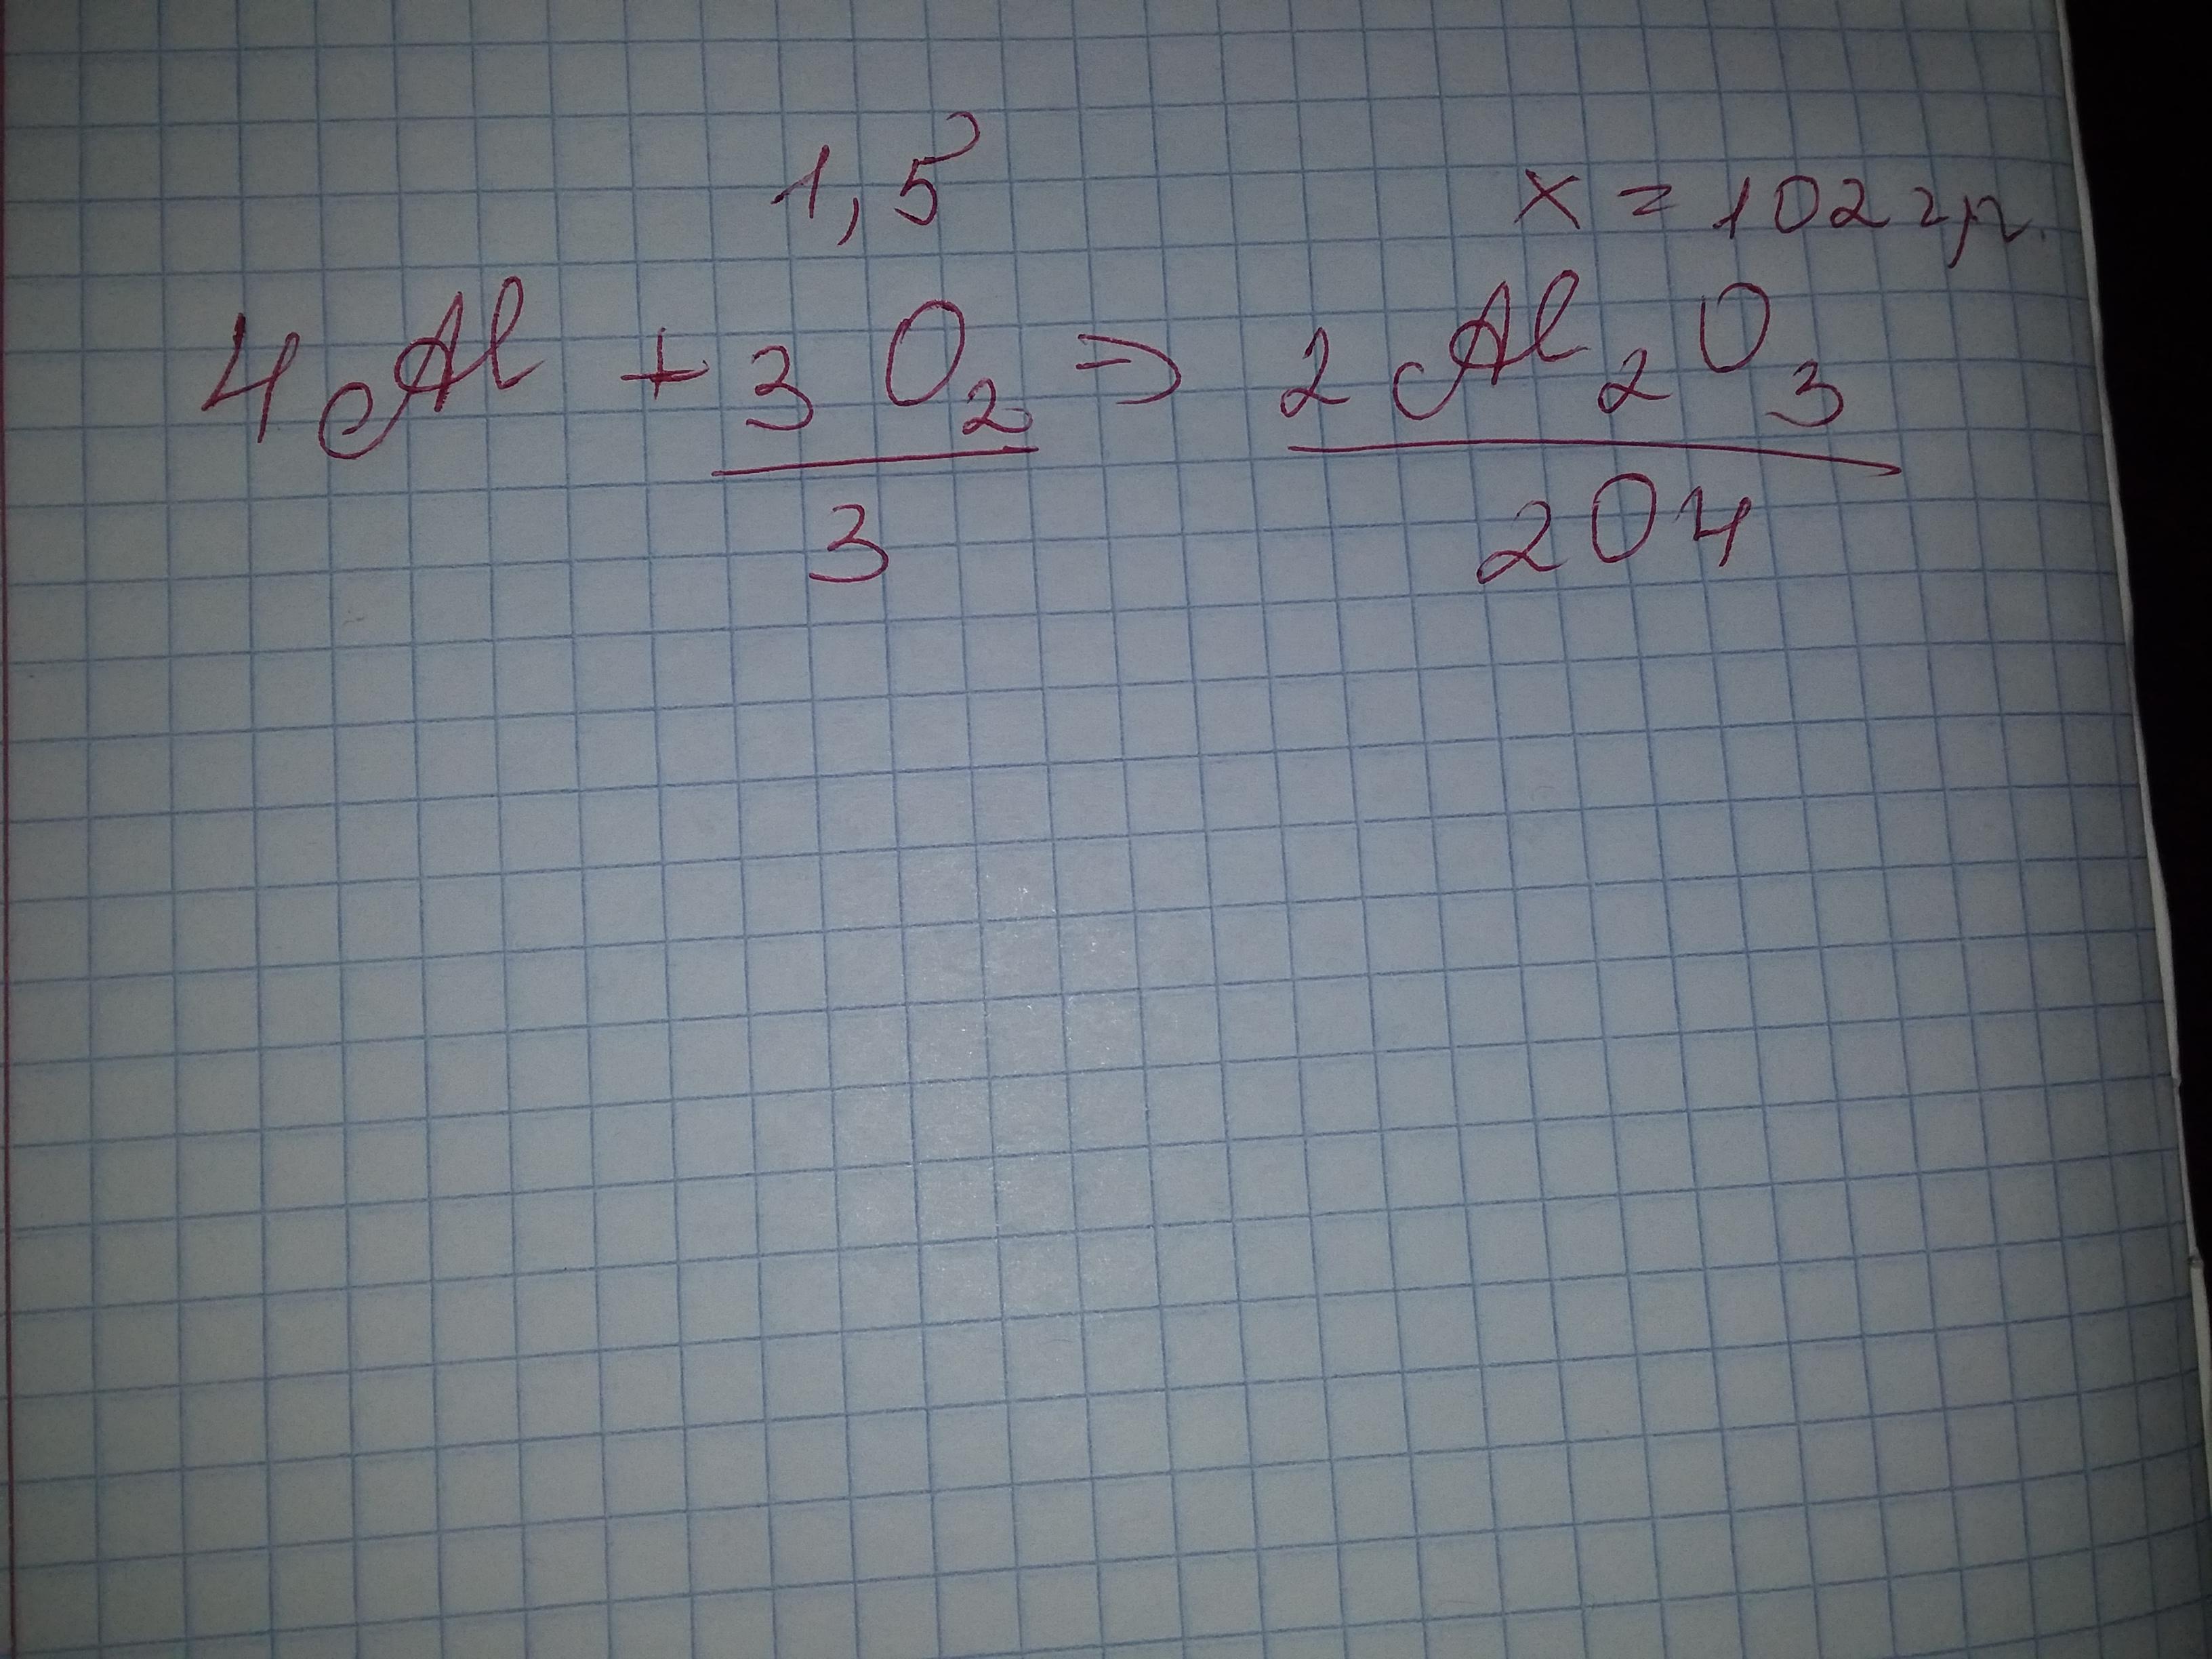 1,5 x = 102 гр.
4 Al + 3 O₂ => 2 Al₂O₃
3 204